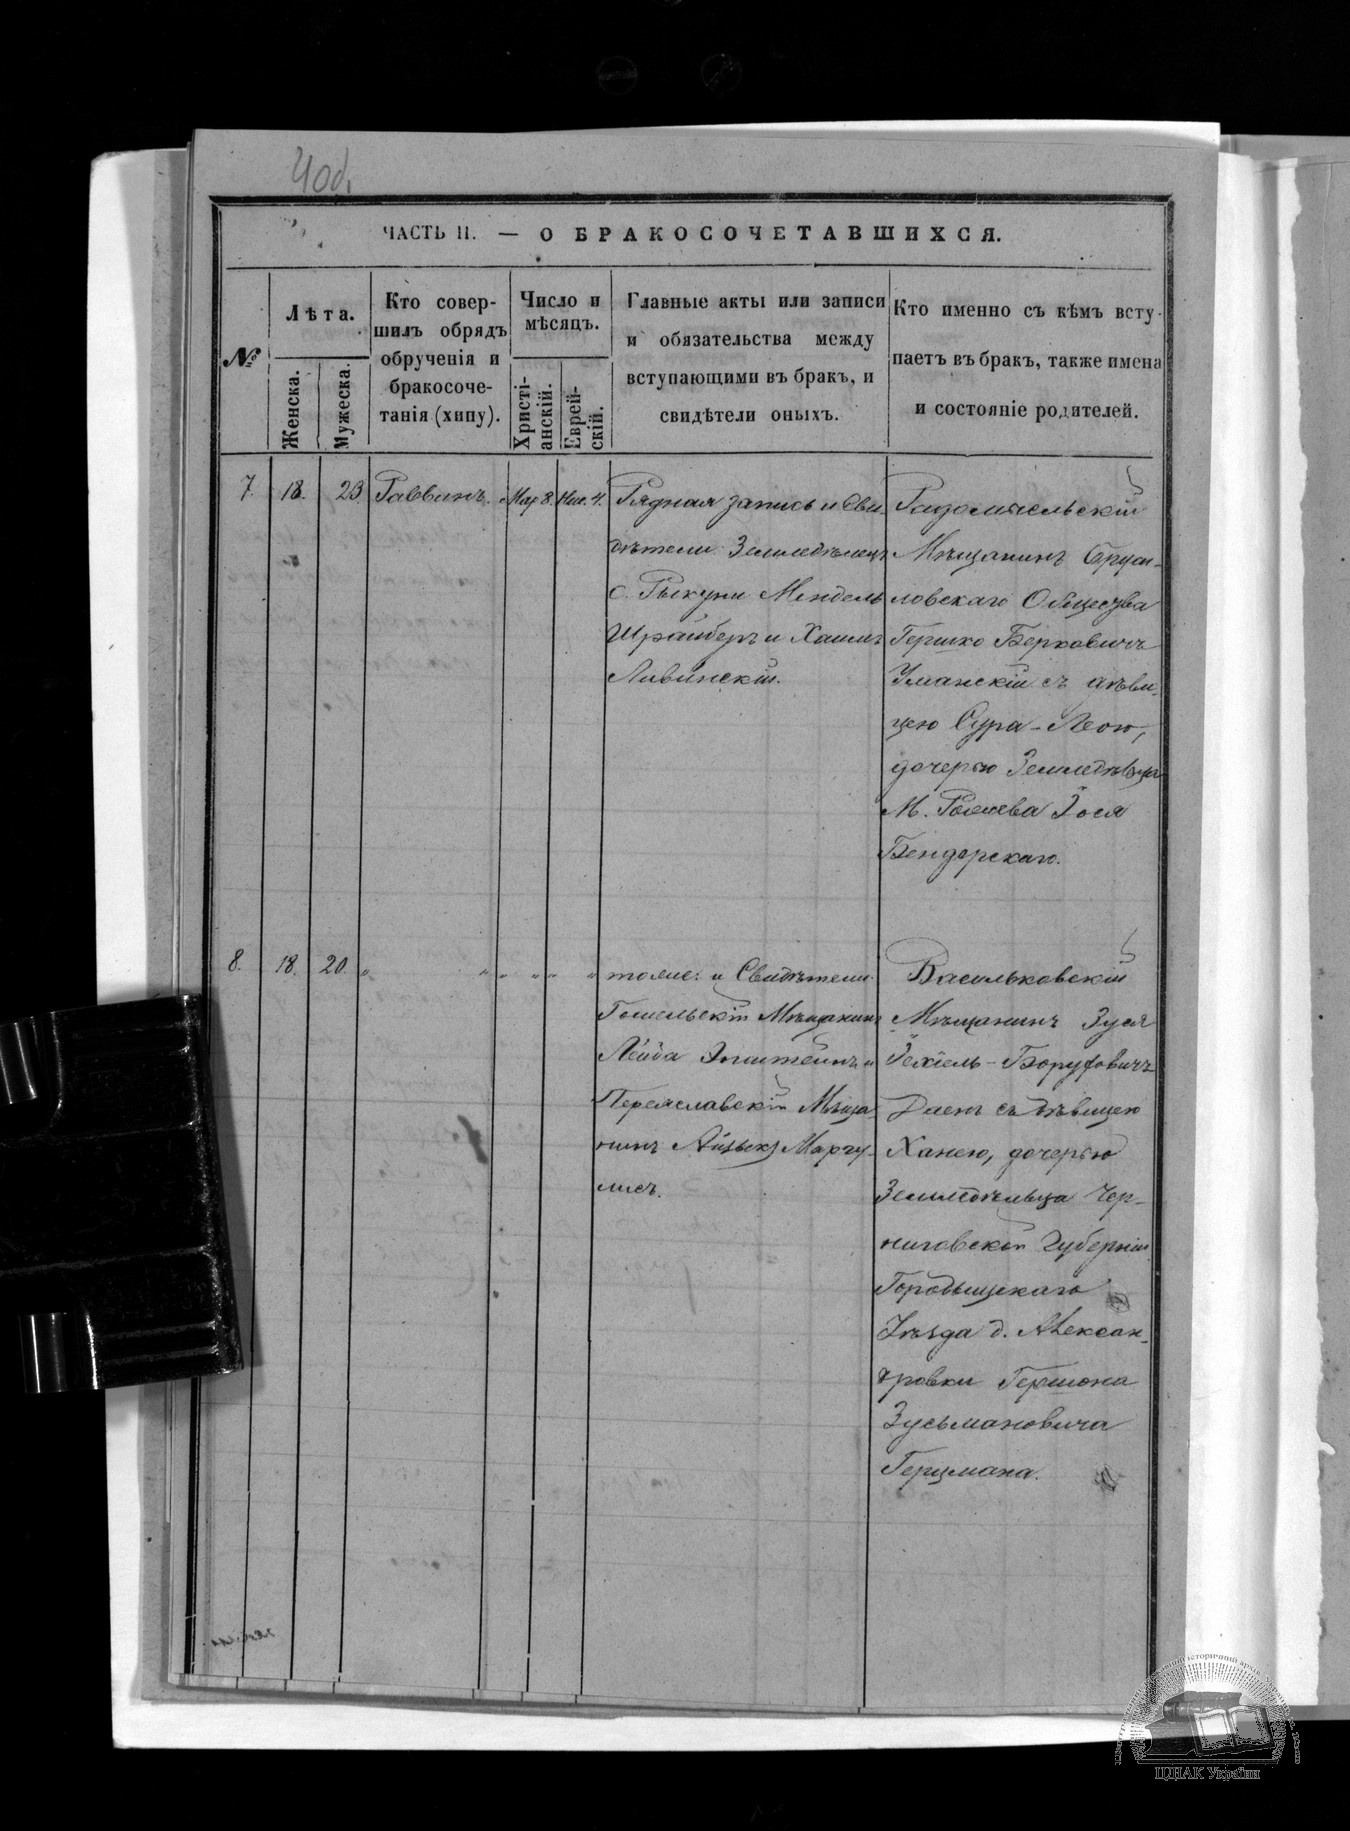 4об.
ЧАСТЬ II. — О БРАКОСОЧЕТАВШИХСЯ.
№
Лѣта.
Женска.
Мужеска.
Кто совер-
шилъ обрядъ
обрученія и
бракосоче-
танія (хипу).
Число и
мѣсяцъ.
Христі-
анскій.
Еврей-
скій.
Главные акты или записи
и обязательства между
вступающими въ бракъ, и
свидѣтели оныхъ.
Кто именно съ кѣмъ всту-
паетъ въ бракъ, также имена
и состояніе родителей.
7. 18. 23. Раввинъ. Мар 8. Нис. 4.
Рядная запись и Сви-
дѣтели Земледѣлецъ
с. Рыкуни Мендель
Шрайберъ и Хаимъ
Ливинскій.
Радомысльскій
Мѣщанинъ Бруси-
ловскаго Общества
Гершко Берковичъ
Уманскій съ дѣви-
цею Сура-Леою,
дочерью Земледѣльца
М. Рожева Іося
Бендерскаго.
8. 18. 20. " " " " " "
тоже: и Свидѣтели
Гомельскій Мѣщанинъ
Лейба Эпштейнъ и
Переяславскій Мѣща
нинъ Айзикъ Маргу-
лисъ.
Васильковскій
Мѣщанинъ Зуся
Іехіель-Боруховичъ
Даенъ съ дѣвицею
Ханею, дочерью
Земледѣльца Чер-
ниговской Губерніи
Городыщскаго
Уѣзда д. Алексан-
дровки Гершона
Зусьмановича
Герцмана.
ЦДІАК України